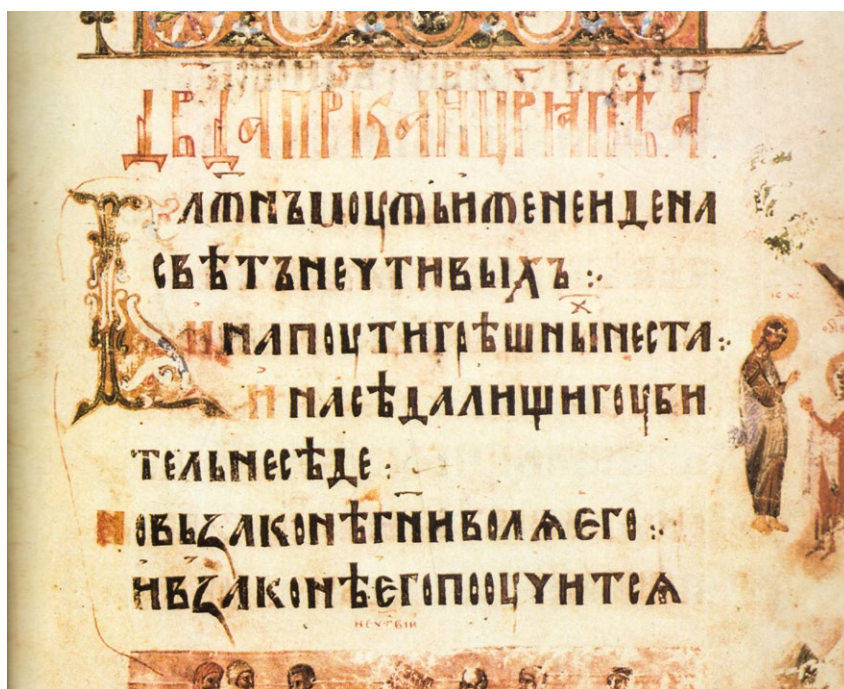 ДВДАПРРКАИЦРꙖПѢ.А.
БЛЖНЪМОУЖЬИЖЕНЕИДЕНА
СВѢТЪНЕЧТИВЫХЪ :·
ИНАПОУТИГРѢШНЫͯНЕСТА :·
ИНАСѢДАЛИЩИГОУБИ
ТЕЛЬНЕСѢДЕ :
НОВЬЗАКОНѢГНИВОЛѦЕГО :·
ИВЗАКОНѢЕГОПООУЧИТСѦ
IC XC